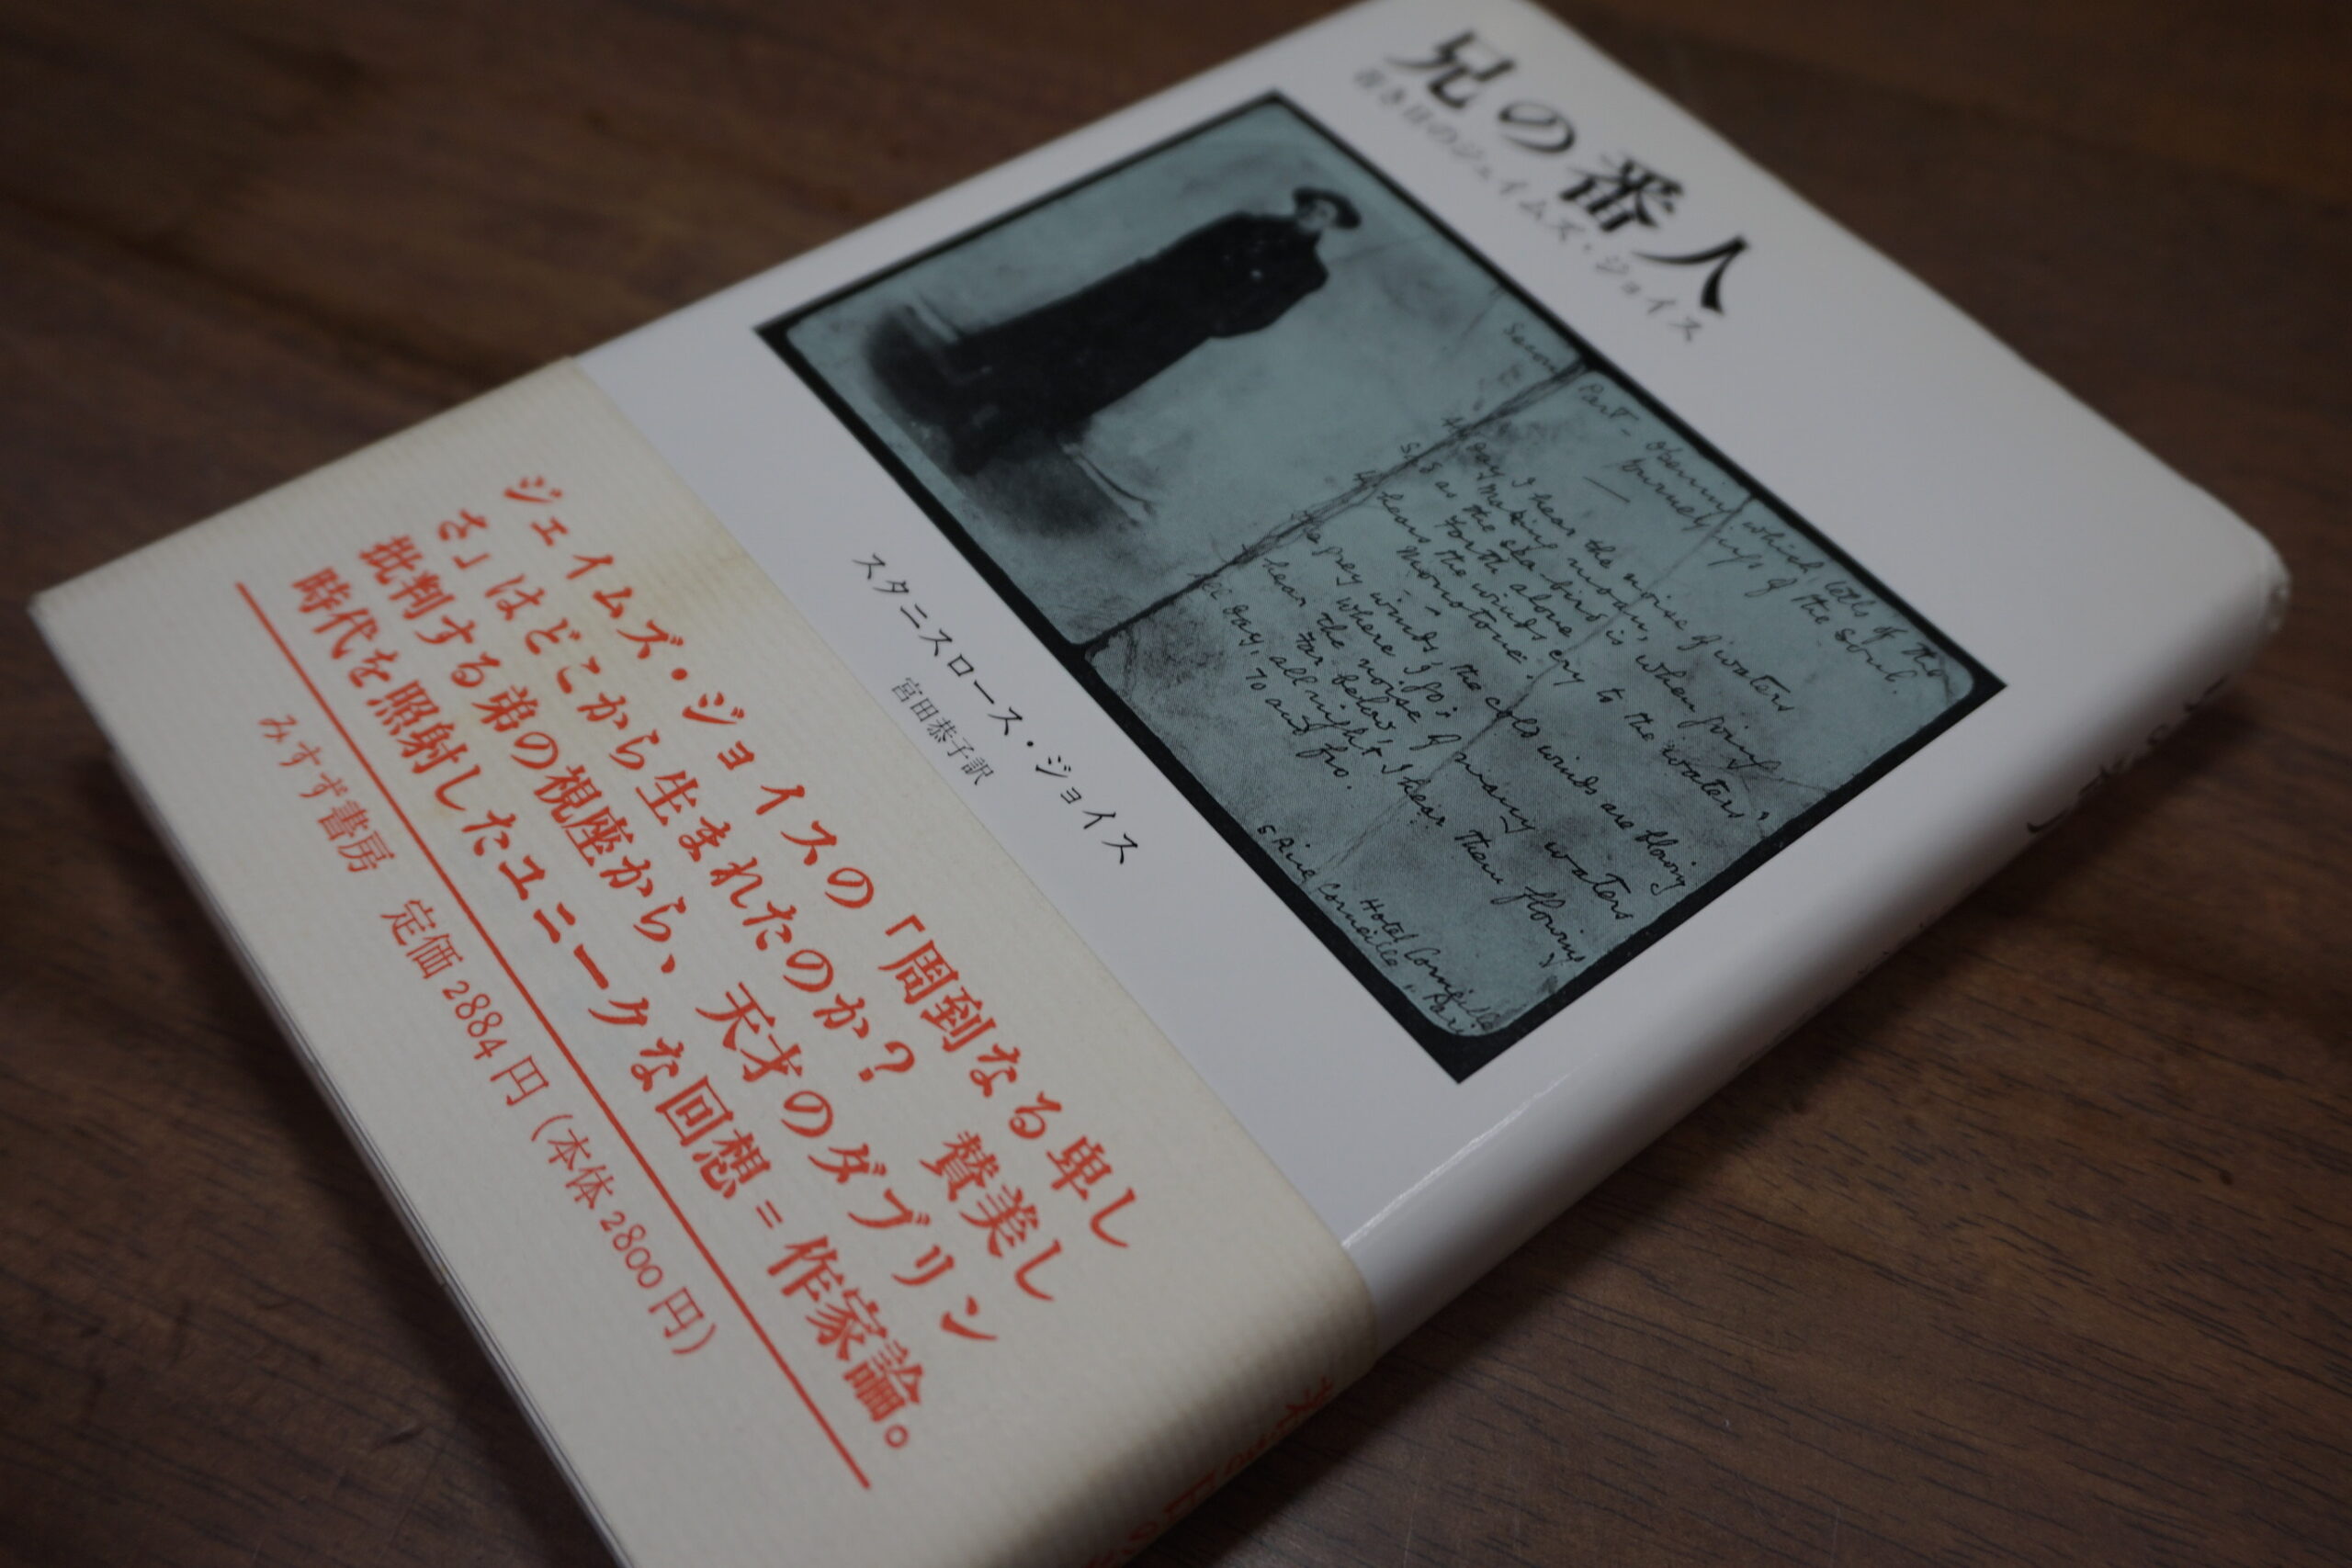 兄の番人
若き日のジェイムズ・ジョイス
Second Part – Opening which tells of the
journeyings of the soul.
All day I hear the noise of waters
Making moan,
Sad as the sea-bird is, when going
Forth alone
He hears the winds cry to the waters'
Monotone.
The grey winds, the cold winds are blowing
Where I go;
I hear the noise of many waters
Far below,
All day, all night I hear them flowing
To and fro.
Hotel Corneille
5 Rue Corneille, Paris
スタニスロース・ジョイス
宮田恭子訳
ジェイムズ・ジョイスの「周到なる卑し
さ」はどこから生まれたのか？ 賛美し
批判する弟の視座から、天才のダブリン
時代を照射したユニークな回想＝作家論。
みすず書房 定価2884円（本体2800円）